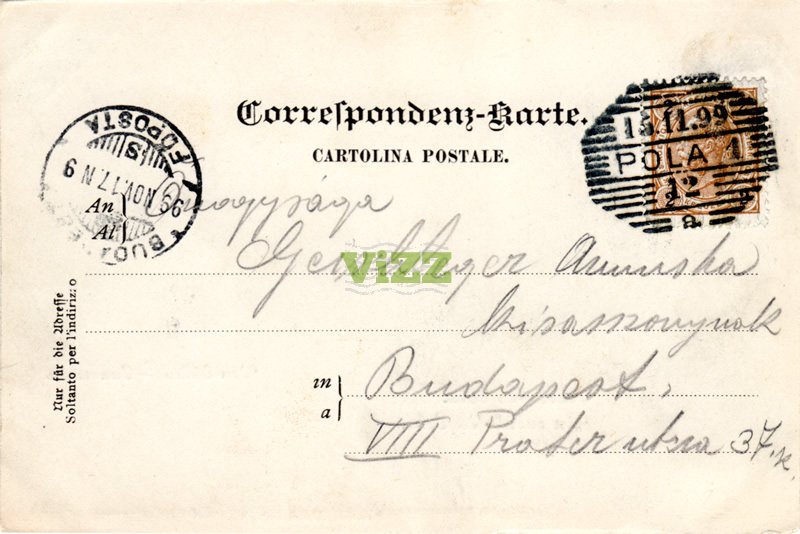 Correspondenz-Karte.
CARTOLINA POSTALE.
15.11.99
POLA 1
12
a
BUDAPEST FŐPOSTA
99 NOV. 17. N 9
S
An
Al
Őnagysága
Annuska
kisasszonynak
in
a
Budapest.
VIII Prater utcza 37. sz.
Nur für die Adresse
Soltanto per l'indirizzo
vizz